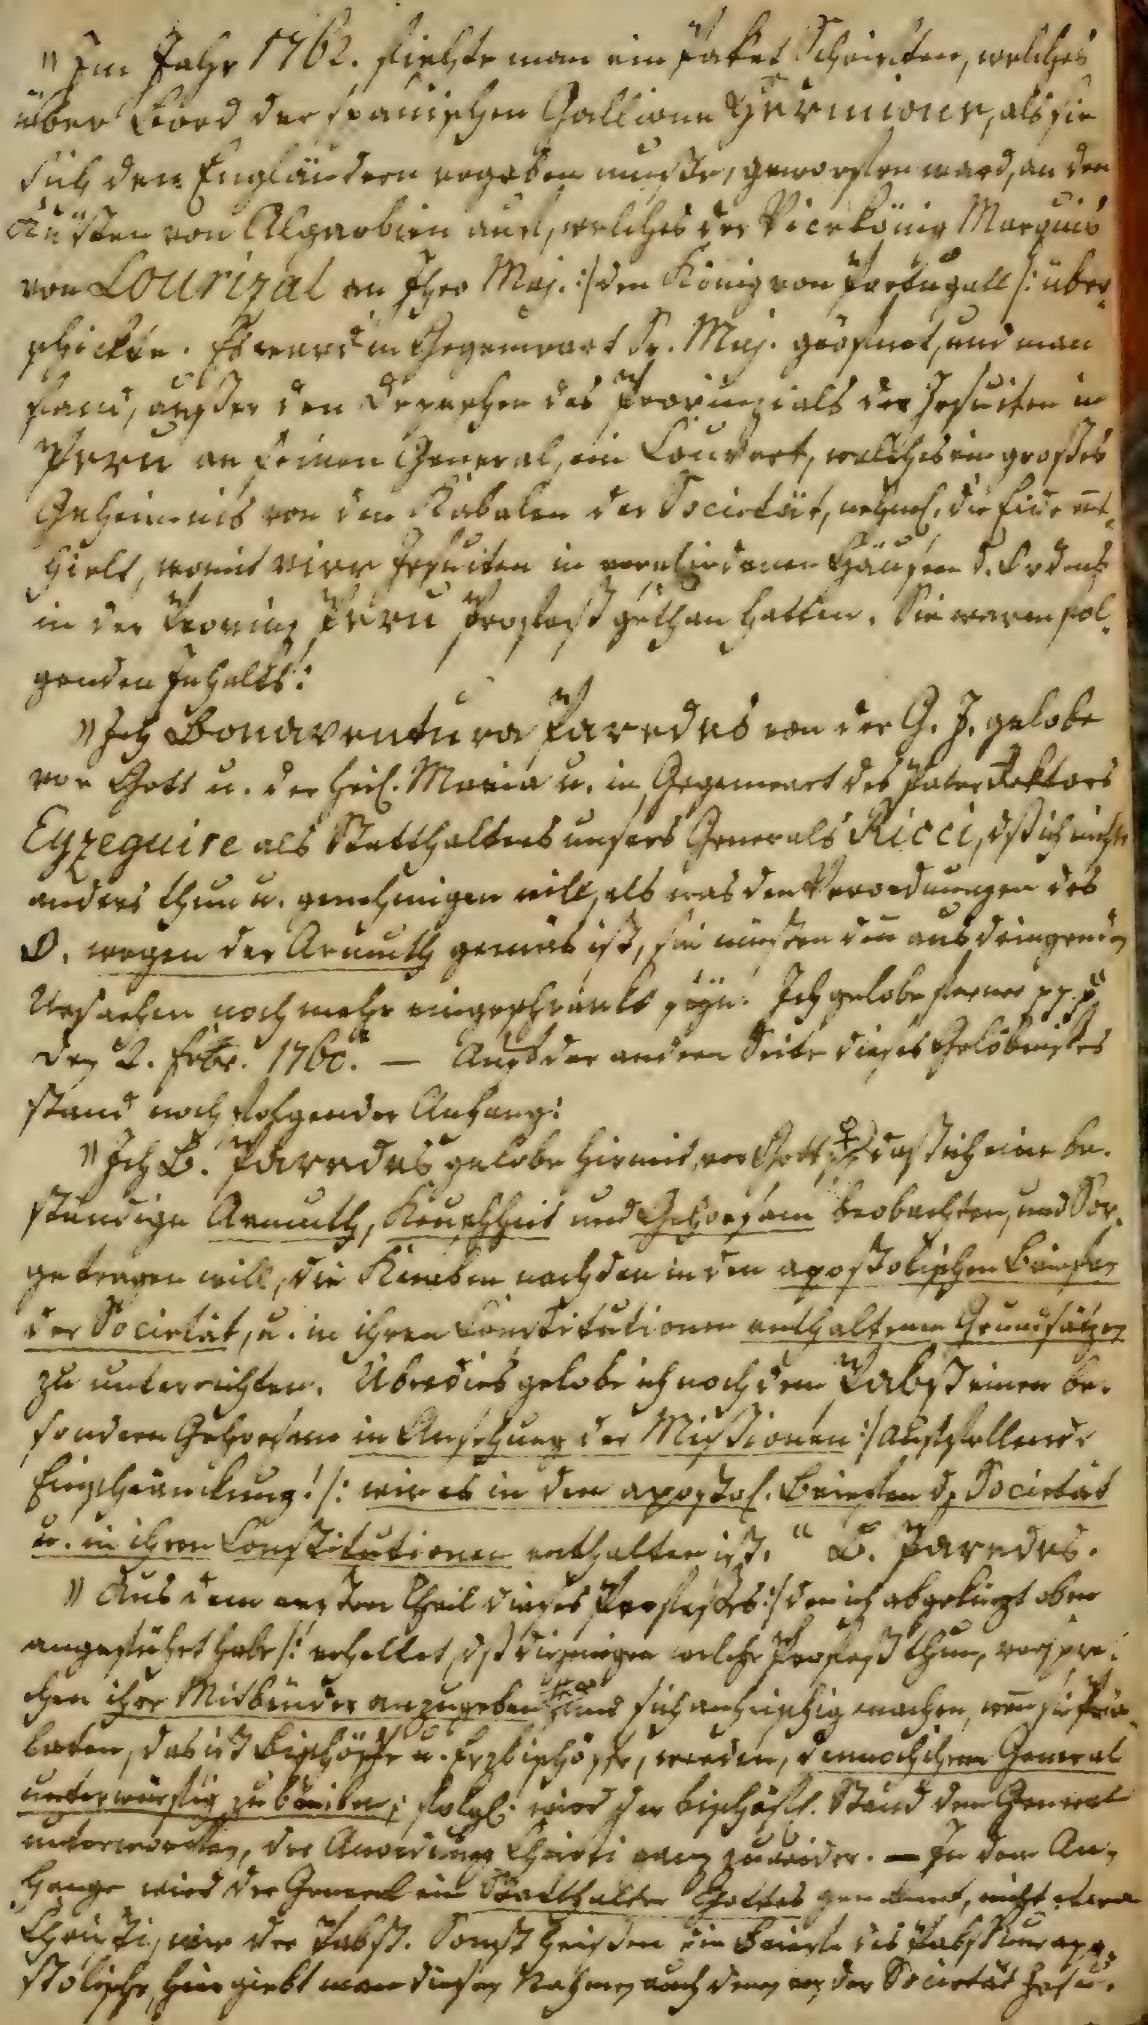 "Im Jahr 1762. fischte man ein Paket Schriften, welches
über Bord der spanischen Gallione Hermione, als sie
sich den Engländern ergeben mußte, geworffen ward, an den
Küsten von Algarbien auf, welches der Vicekönig Marquis
von LOUrizal an Ihro Maj. :/ den König von Portugall /: über-
schickte. Es ward in Gegenwart Sr. Maj. geöfnet, und man
fand, außer den Depechen des Provinzials der Jesuiten in
Peru an seinen General, ein Couvert, welches ein großes
Geheimnis von den Kabalen der Societät, nehml. die Eide ent-
hielt, womit vier Jesuiten in verschiedenen Häusern d. Ordens
in der Provinz Peru Profeß gethan hatten. Sie waren fol-
genden Inhalts:
"Ich Bonaventura Paredes von der G. J. gelobe
vor Gott u. der heil. Maria u. in Gegenwart des Pater Rektors
Eyzeguire als Statthalters unsers Generals Ricci, dß ich nichts
anders thun u. genehmigen will, als was den Verordnungen des
O. wegen der Armuth gemäs ist, sie müsten den aus dringenden
Ursachen noch mehr eingeschränkt seyn. Ich gelobe ferner pp. p"
den 2. Febr. 1760." — Auf der andern Seite dieses Gelöbnisses
stand noch folgender Anhang:
"Ich B. Paredes gelobe hiermit vor Gott daß ich eine be-
ständige Armuth, Keuschheit und Gehorsam beobachten, und Sor-
ge tragen will, die Knaben nach den in den apostolischen Briefen
der Societät, u. in ihren Constitutionen enthaltenen Grundsätzen
zu unterrichten. Überdies gelobe ich noch dem Pabst einen be-
sondern Gehorsam in Ansehung der Missionen :/ Auffallende
Einschränkung! /: wie es in den apostol. Briefen d. Societät
u. in ihren Constitutionen enthalten ist." B. Paredes.
"Aus dem ersten Theil dieses Profeßes :/ den ich abgekürzt oben
angeführt habe /: erhellet, dß diejenigen welche Profeß thun, verspre-
chen ihre Mitbrüder anzugeben und sich anheischig machen, wen sie Prä-
laten, das ist Bischöffe u. Erzbischöffe, werden, dennoch ihrem General
unterwürfig zu bleiben; folgl. wird der bischöfl. Stand dem General
unterworfen, der Anordnung Christi ganz zuwider. — In dem An-
hange wird der General ein Statthalter Gottes genennt, nicht etwa
Christi, wie der Pabst. Sonst heissen die Briefe des Pabst nur apo-
stolische, hier giebt man diesen Nahmen auch den der Societät Jesu.